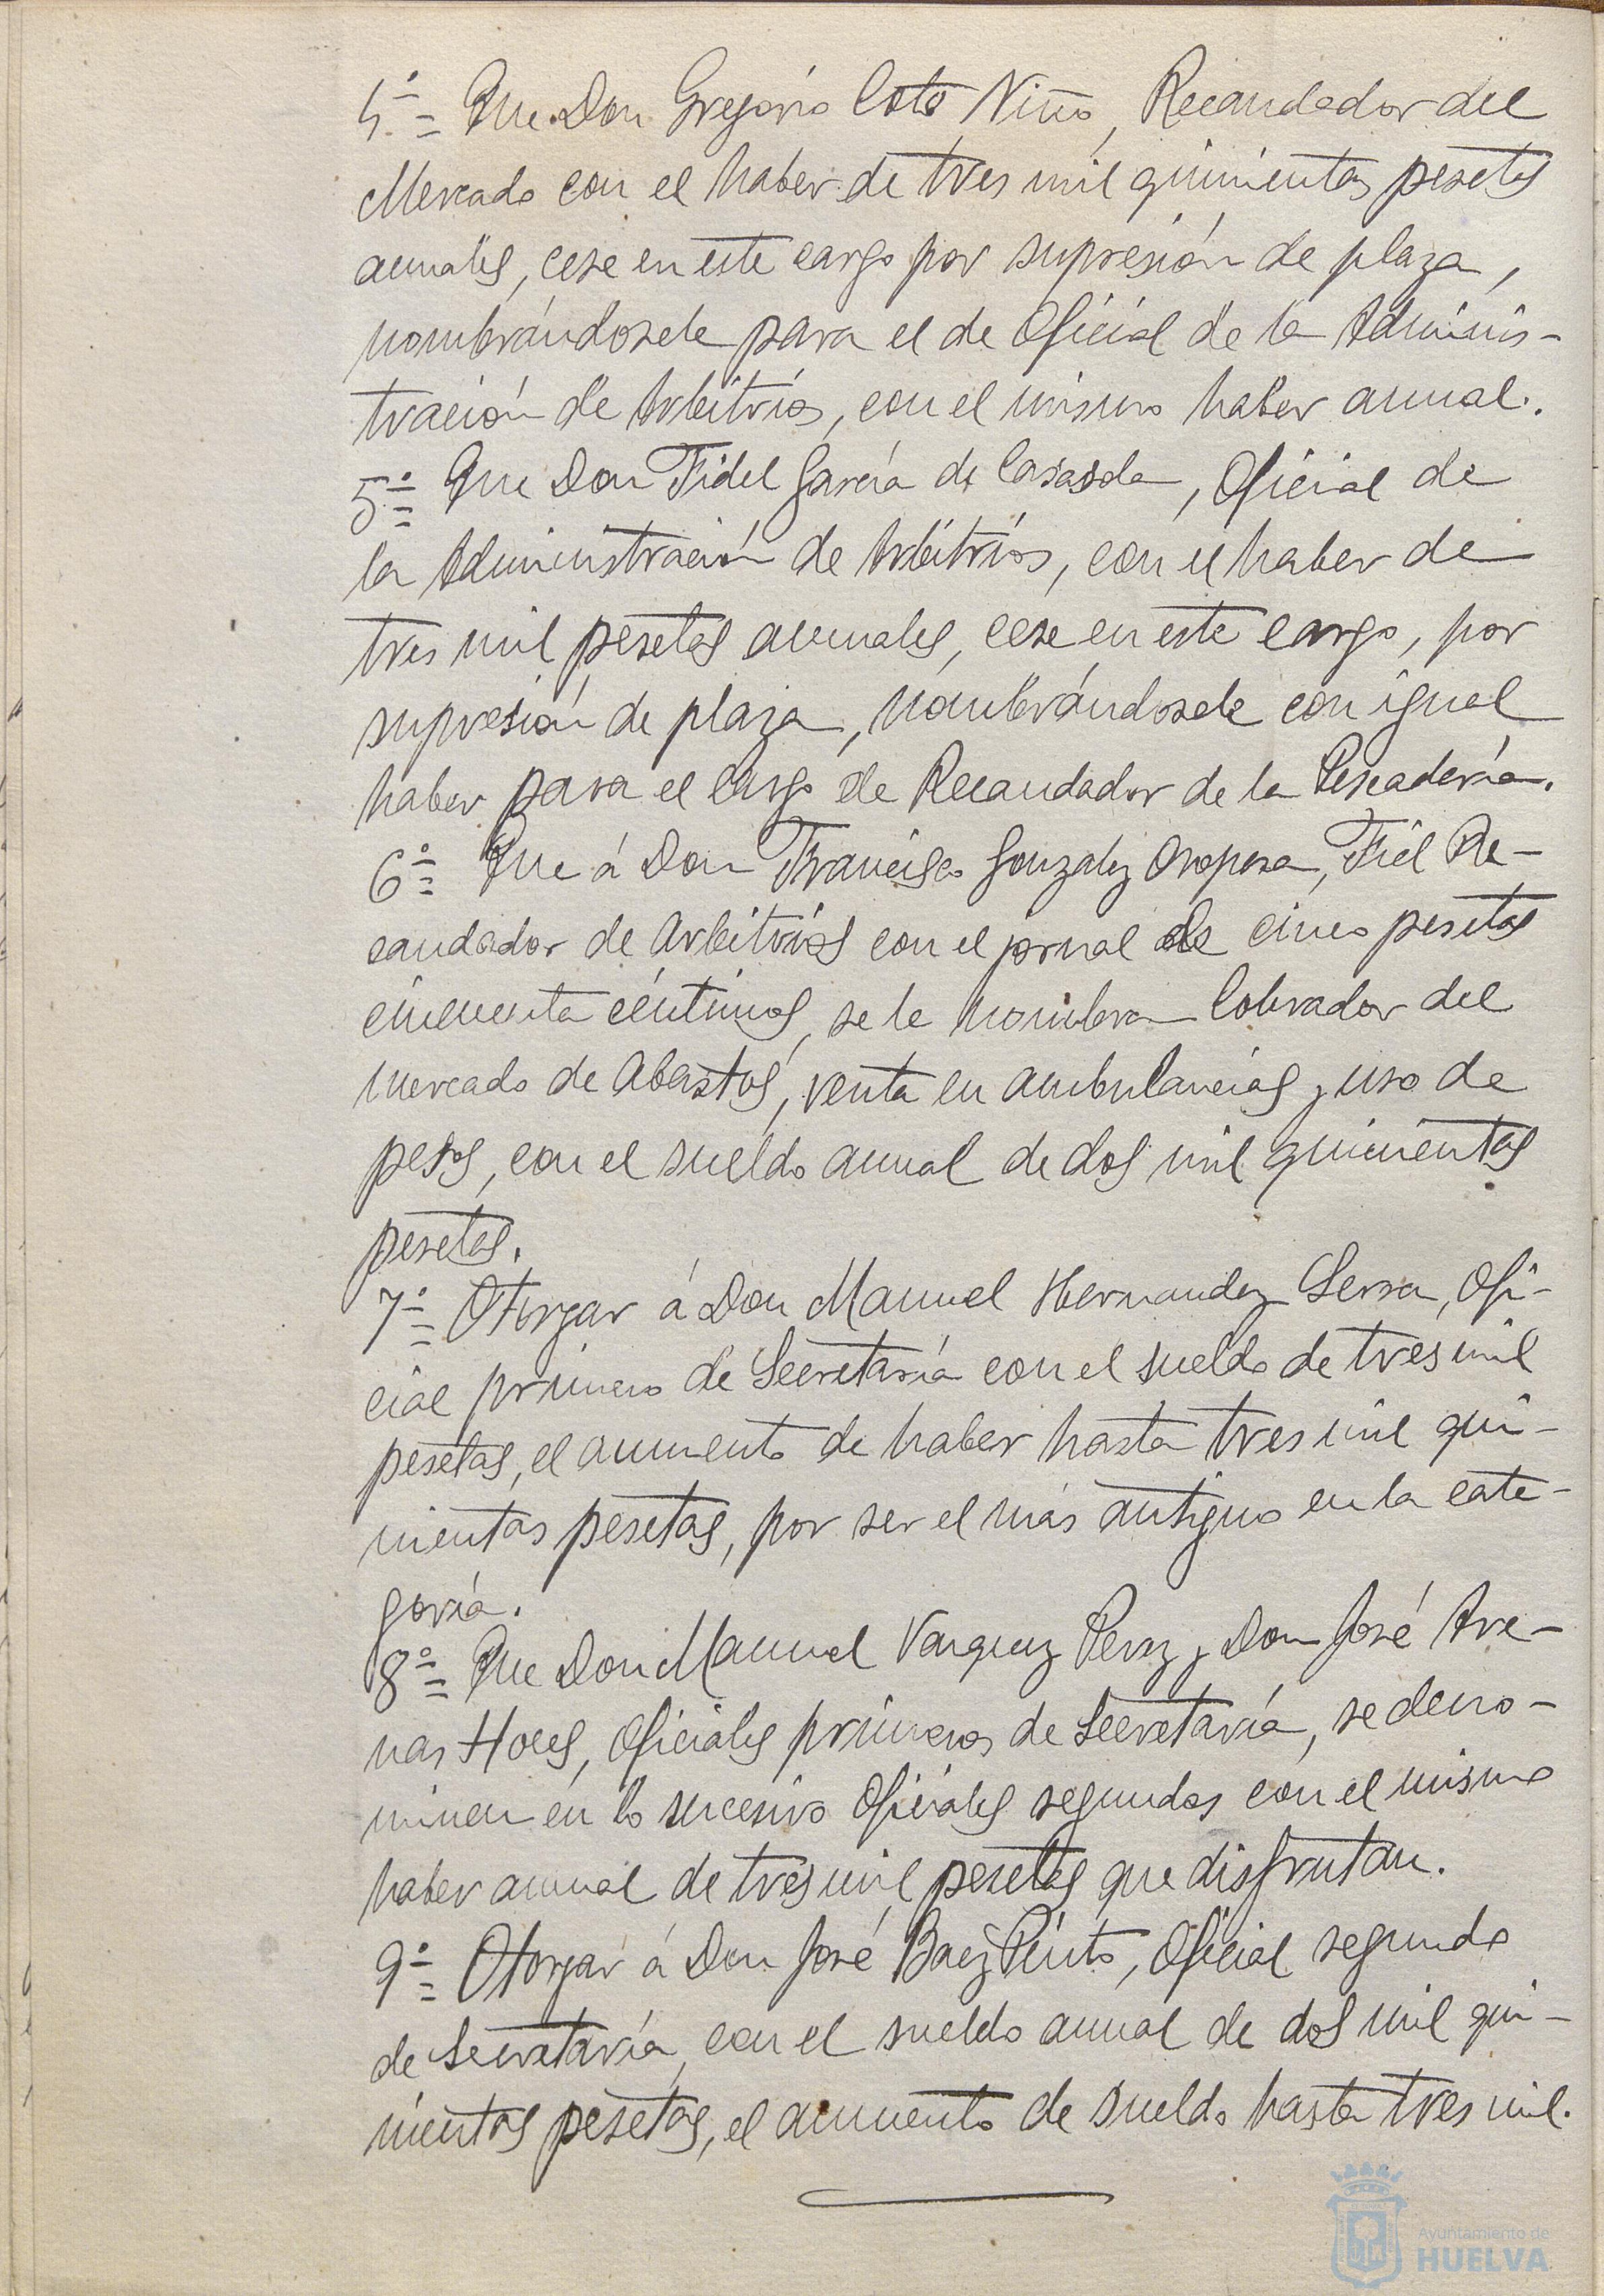 4º= Que Don Gregorio Coto Niño, Recaudador del
Mercado con el haber de tres mil quinientas pesetas
anuales, cese en este cargo por supresión de plaza,
nombrándosele para el de Oficial de la Adminis-
tración de Arbitrios, con el mismo haber anual.
5º= Que Don Fidel García de Casasola, Oficial de
la Administración de Arbitrios, con el haber de
tres mil pesetas anuales, cese en este cargo, por
supresión de plaza, nombrándosele con igual
haber para el cargo de Recaudador de la Pescadería.
6º= Que á Don Francisco Gonzalez Oropesa, Fiel Re-
caudador de Arbitrios con el jornal de cinco pesetas
cincuenta céntimos, se le nombra Cobrador del
mercado de Abastos, venta en ambulancias y uso de
pesos, con el sueldo anual de dos mil quinientas
pesetas.
7º= Otorgar á Don Manuel Hernandez Serra, Ofi-
cial primero de Secretaría con el sueldo de tres mil
pesetas, el aumento de haber hasta tres mil qui-
nientas pesetas, por ser el más antiguo en la cate-
goría.
8º= Que Don Manuel Vazquez Perez y Don José Are-
nas Hoces, Oficiales primeros de Secretaría, se deno-
minen en lo sucesivo Oficiales segundos con el mismo
haber anual de tres mil pesetas que disfrutan.
9º= Otorgar á Don José Baez Pinto, Oficial segundo
de Secretaría, con el sueldo anual de dos mil qui-
nientas pesetas, el aumento de sueldo hasta tres mil.
Ayuntamiento de
HUELVA